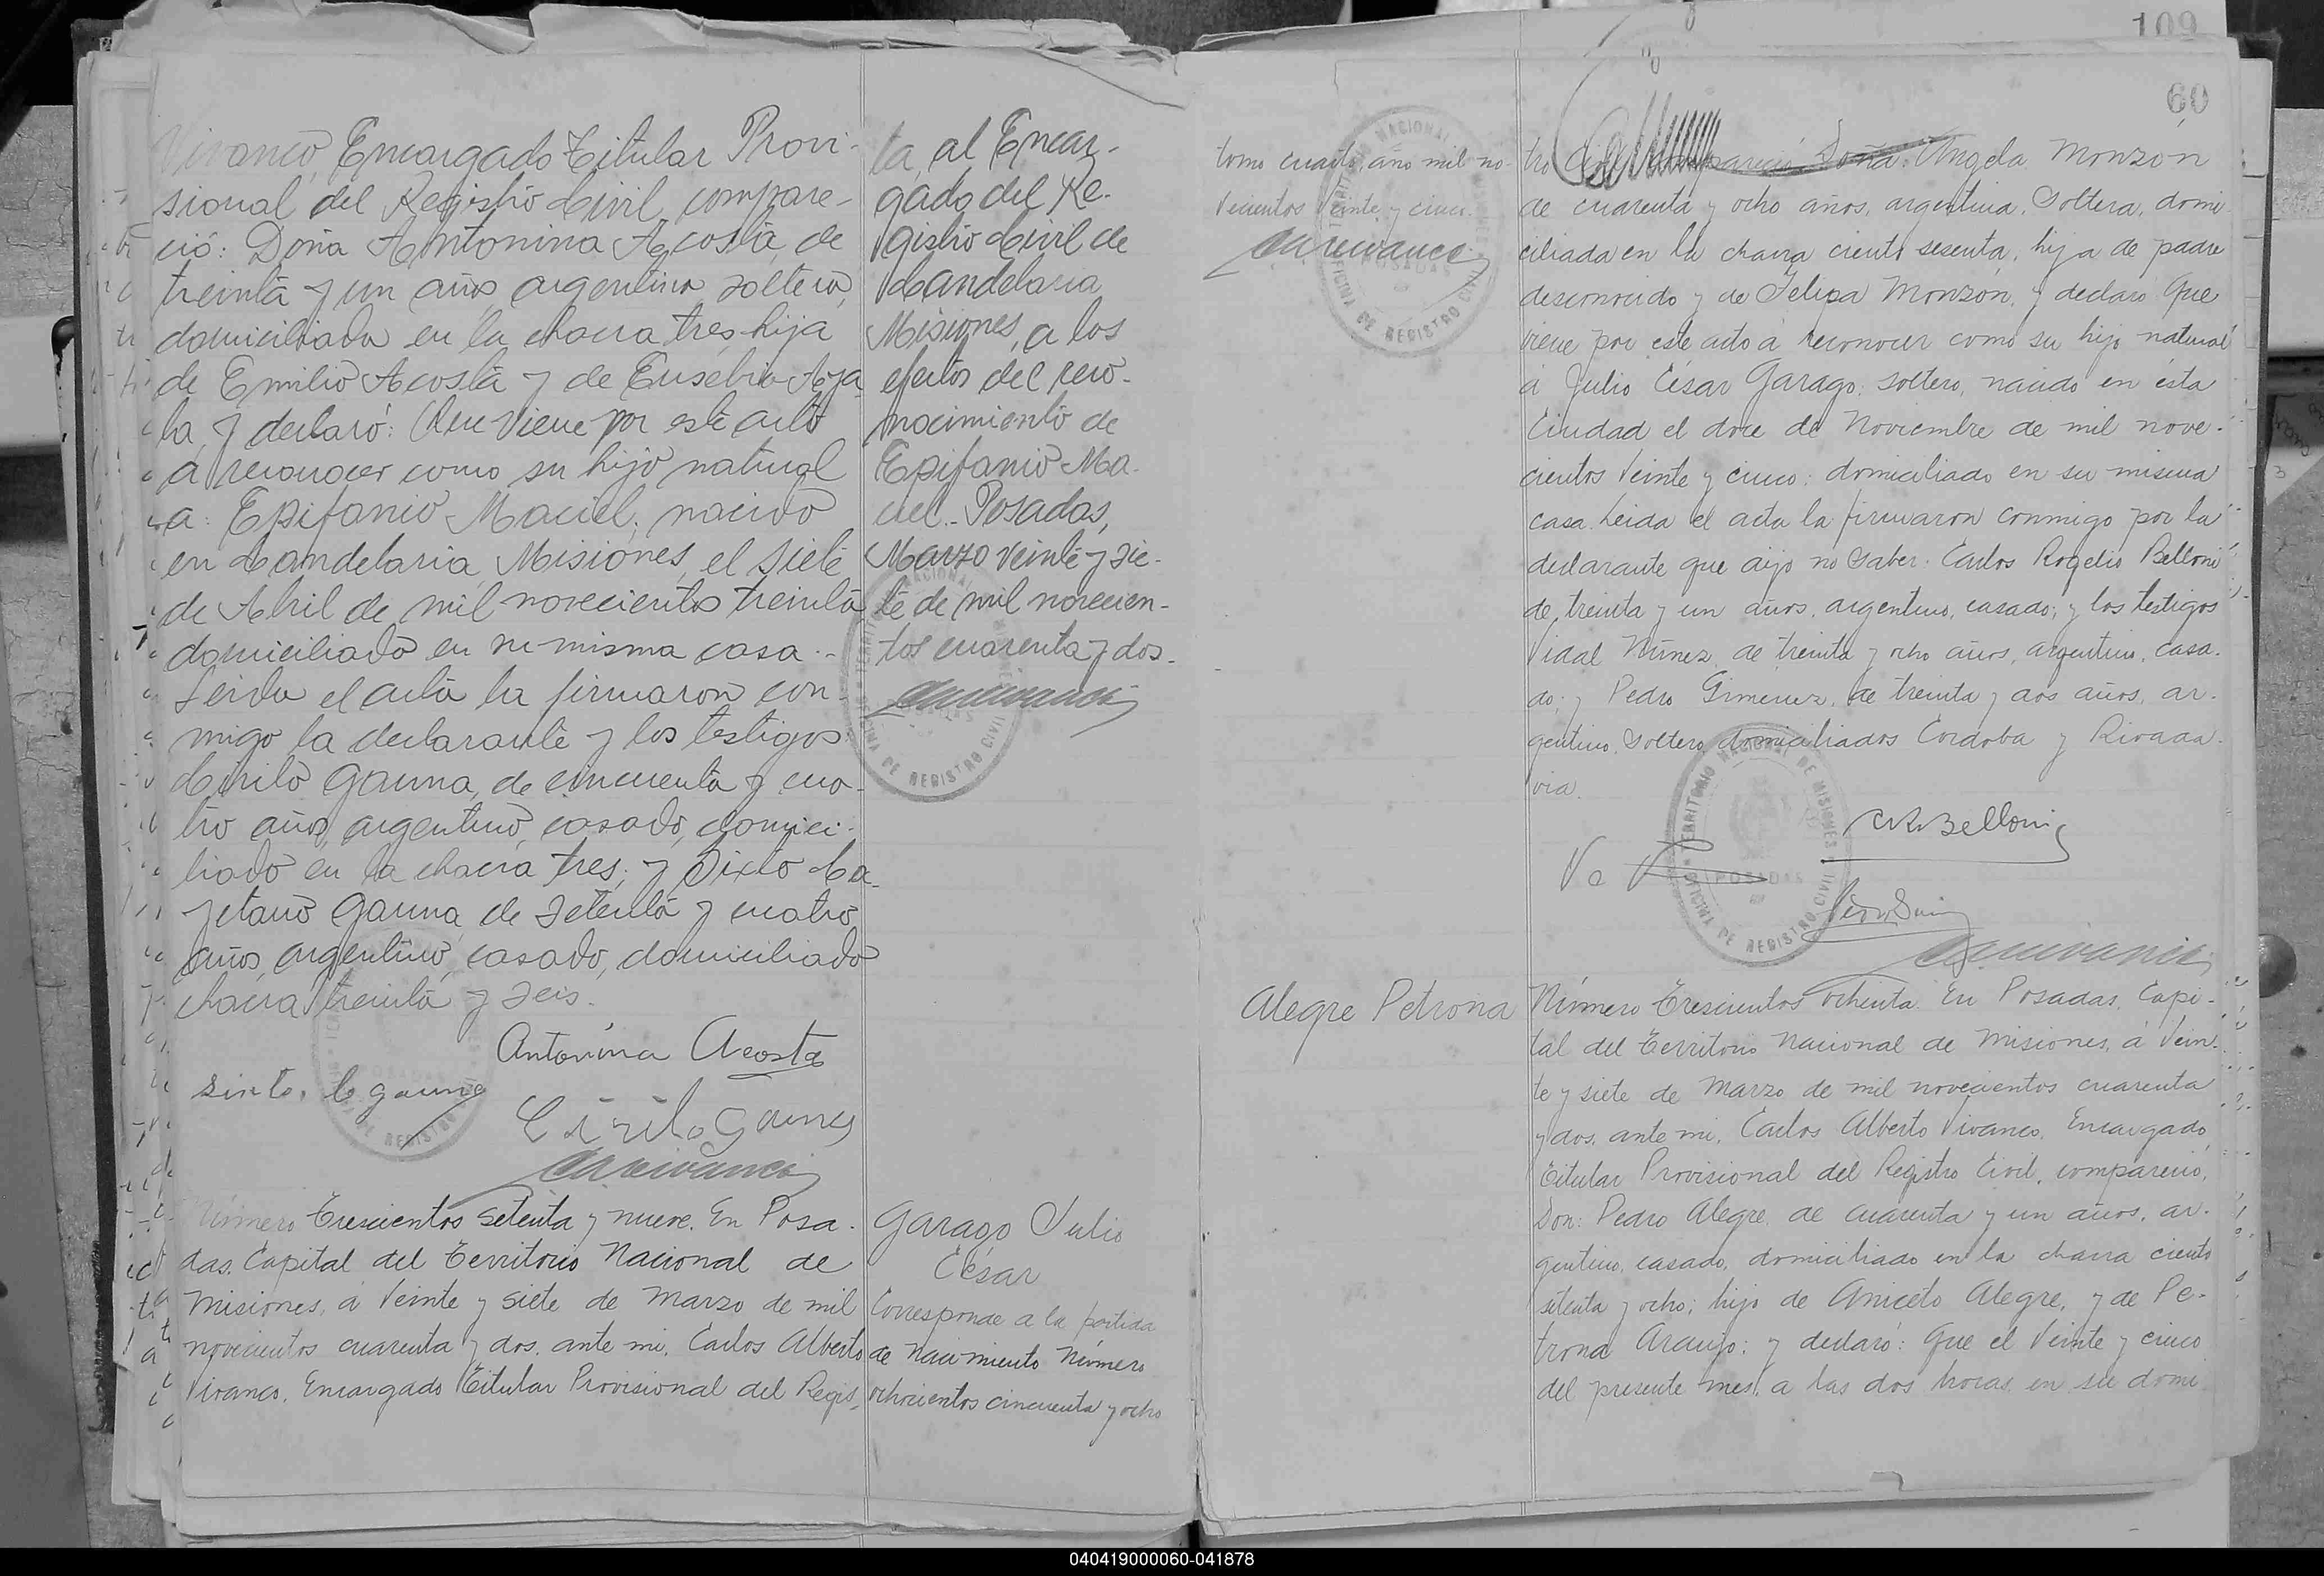 Vivanco, Encargado Titular Provi-
sional del Registro Civil, compare-
ció: Doña Antonina Acosta, de
treinta y un años, argentina, soltera,
domiciliada en la chacra tres, hija
de Emilio Acosta y de Eusebia Aya
la, y declaró: Que viene por este acto
a reconocer como su hijo natural
a: Epifanio Maciel, nacido
en Candelaria, Misiones, el siete
de Abril de mil novecientos treinta
domiciliado en su misma casa.-
Leida el acta la firmaron con-
migo la declarante y los testigos
Cirilo Gauna, de cincuenta y cua-
tro años, argentino, casado, domici-
liado en la chacra tres; y Sixto Ca-
yetano Gauna, de setenta y cuatro
años, argentino, casado, domiciliado
chacra treinta y seis.
Antonina Acosta
Sixto. C gauna
Cirilo Gauna
Número Trescientos setenta y nueve. En Posa-
das. Capital del Territorio Nacional de
Misiones, á Veinte y siete de Marzo de mil
novecientos cuarenta y dos. ante mi, Carlos Alberto
Vivanco. Encargado Titular Provisional del Regis-
ta, al Encar-
gado del Re-
gistro Civil de
Candelaria
Misiones, a los
efectos del reco-
nocimiento de
Epifanio Ma-
ciel.- Posadas,
Marzo veinte y sie-
te de mil novecien-
tos cuarenta y dos-
Garago Julio
César
Corresponde a la partida
de Nacimiento Número
ochocientos cincuenta y ocho
109
60
tomo cuarto, año mil no-
vecientos Veinte y cinco.
tro Civil compareció Doña: Angela Monzón
de cuarenta y ocho años, argentina, Soltera, domi-
ciliada en la chacra ciento sesenta, hija de padre
desconocido y de Felipa Monzón, y declaro Que
viene por este acto á reconocer como su hijo natural
á Julio César Garago: soltero, nacido en ésta
Ciudad el doce de Noviembre de mil nove-
cientos Veinte y cinco: domiciliado en su misma
casa. Leida el acta la firmaron conmigo por la
declarante que dijo no saber: Carlos Rogelio Belloni
de treinta y un años, argentino, casado; y los testigos
Vidal Núnez, de treinta y ocho años, argentino, casa-
do; y Pedro Gimenez, de treinta y dos años, ar-
gentino. Soltero domiciliados Cordoba y Rivada-
via.
C.R. Belloni
Alegre Petrona
Número Trescientos ochenta. En Posadas, Capi-
tal del Territorio Nacional de Misiones, á Vein-
te y siete de Marzo de mil novecientos cuarenta
y dos, ante mi, Carlos Alberto Vivanco. Encargado
Titular Provisional del Registro Civil, compareció,
Don: Pedro Alegre, de cuarenta y un años, ar-
gentino, casado, domiciliado en la chacra ciento
setenta y ocho; hijo de Aniceto Alegre, y de Pe-
trona Araujo: y declaró: Que el Veinte y cinco
del presente mes, a las dos horas, en su domi
TERRITORIO NACIONAL DE MISIONES
POSADAS
OFICINA DE REGISTRO CIVIL
040419000060-041878